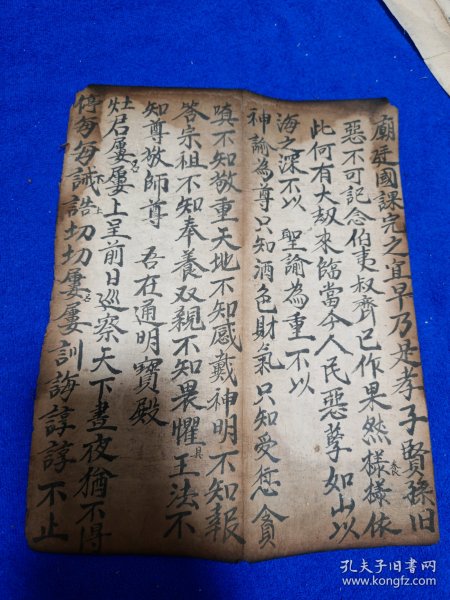 廟廷國課完之宜早乃是孝子賢孫旧
惡不可記念伯夷叔齊已作果然樣樣依
此何有大刼來臨當今人民惡孽如山以
海之深不以 聖諭為重不以
神諭為尊只知酒色財氣只知愛慾貪
嗔不知敬重天地不知感戴神明不知報
答宗祖不知奉養双親不知畏懼王法不
知尊敬師尊 吾在通明寶殿
灶君屢屢上呈前日巡察天下晝夜猶不得
停每每誡誥切切屢屢訓誨諄諄不止
孔夫子旧书网
www.kongfz.com